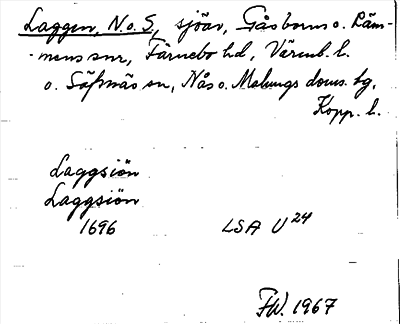 Laggen, N. o. S, sjöar, Gåsborns o. Räm-
mens snr, Färnebo hd, Värml. l.
o. Säfsnäs sn, Nås o. Malungs doms. tg,
Kopp. l.
Laggsiön
Laggsiön
1696 LSA U 24
FW. 1967